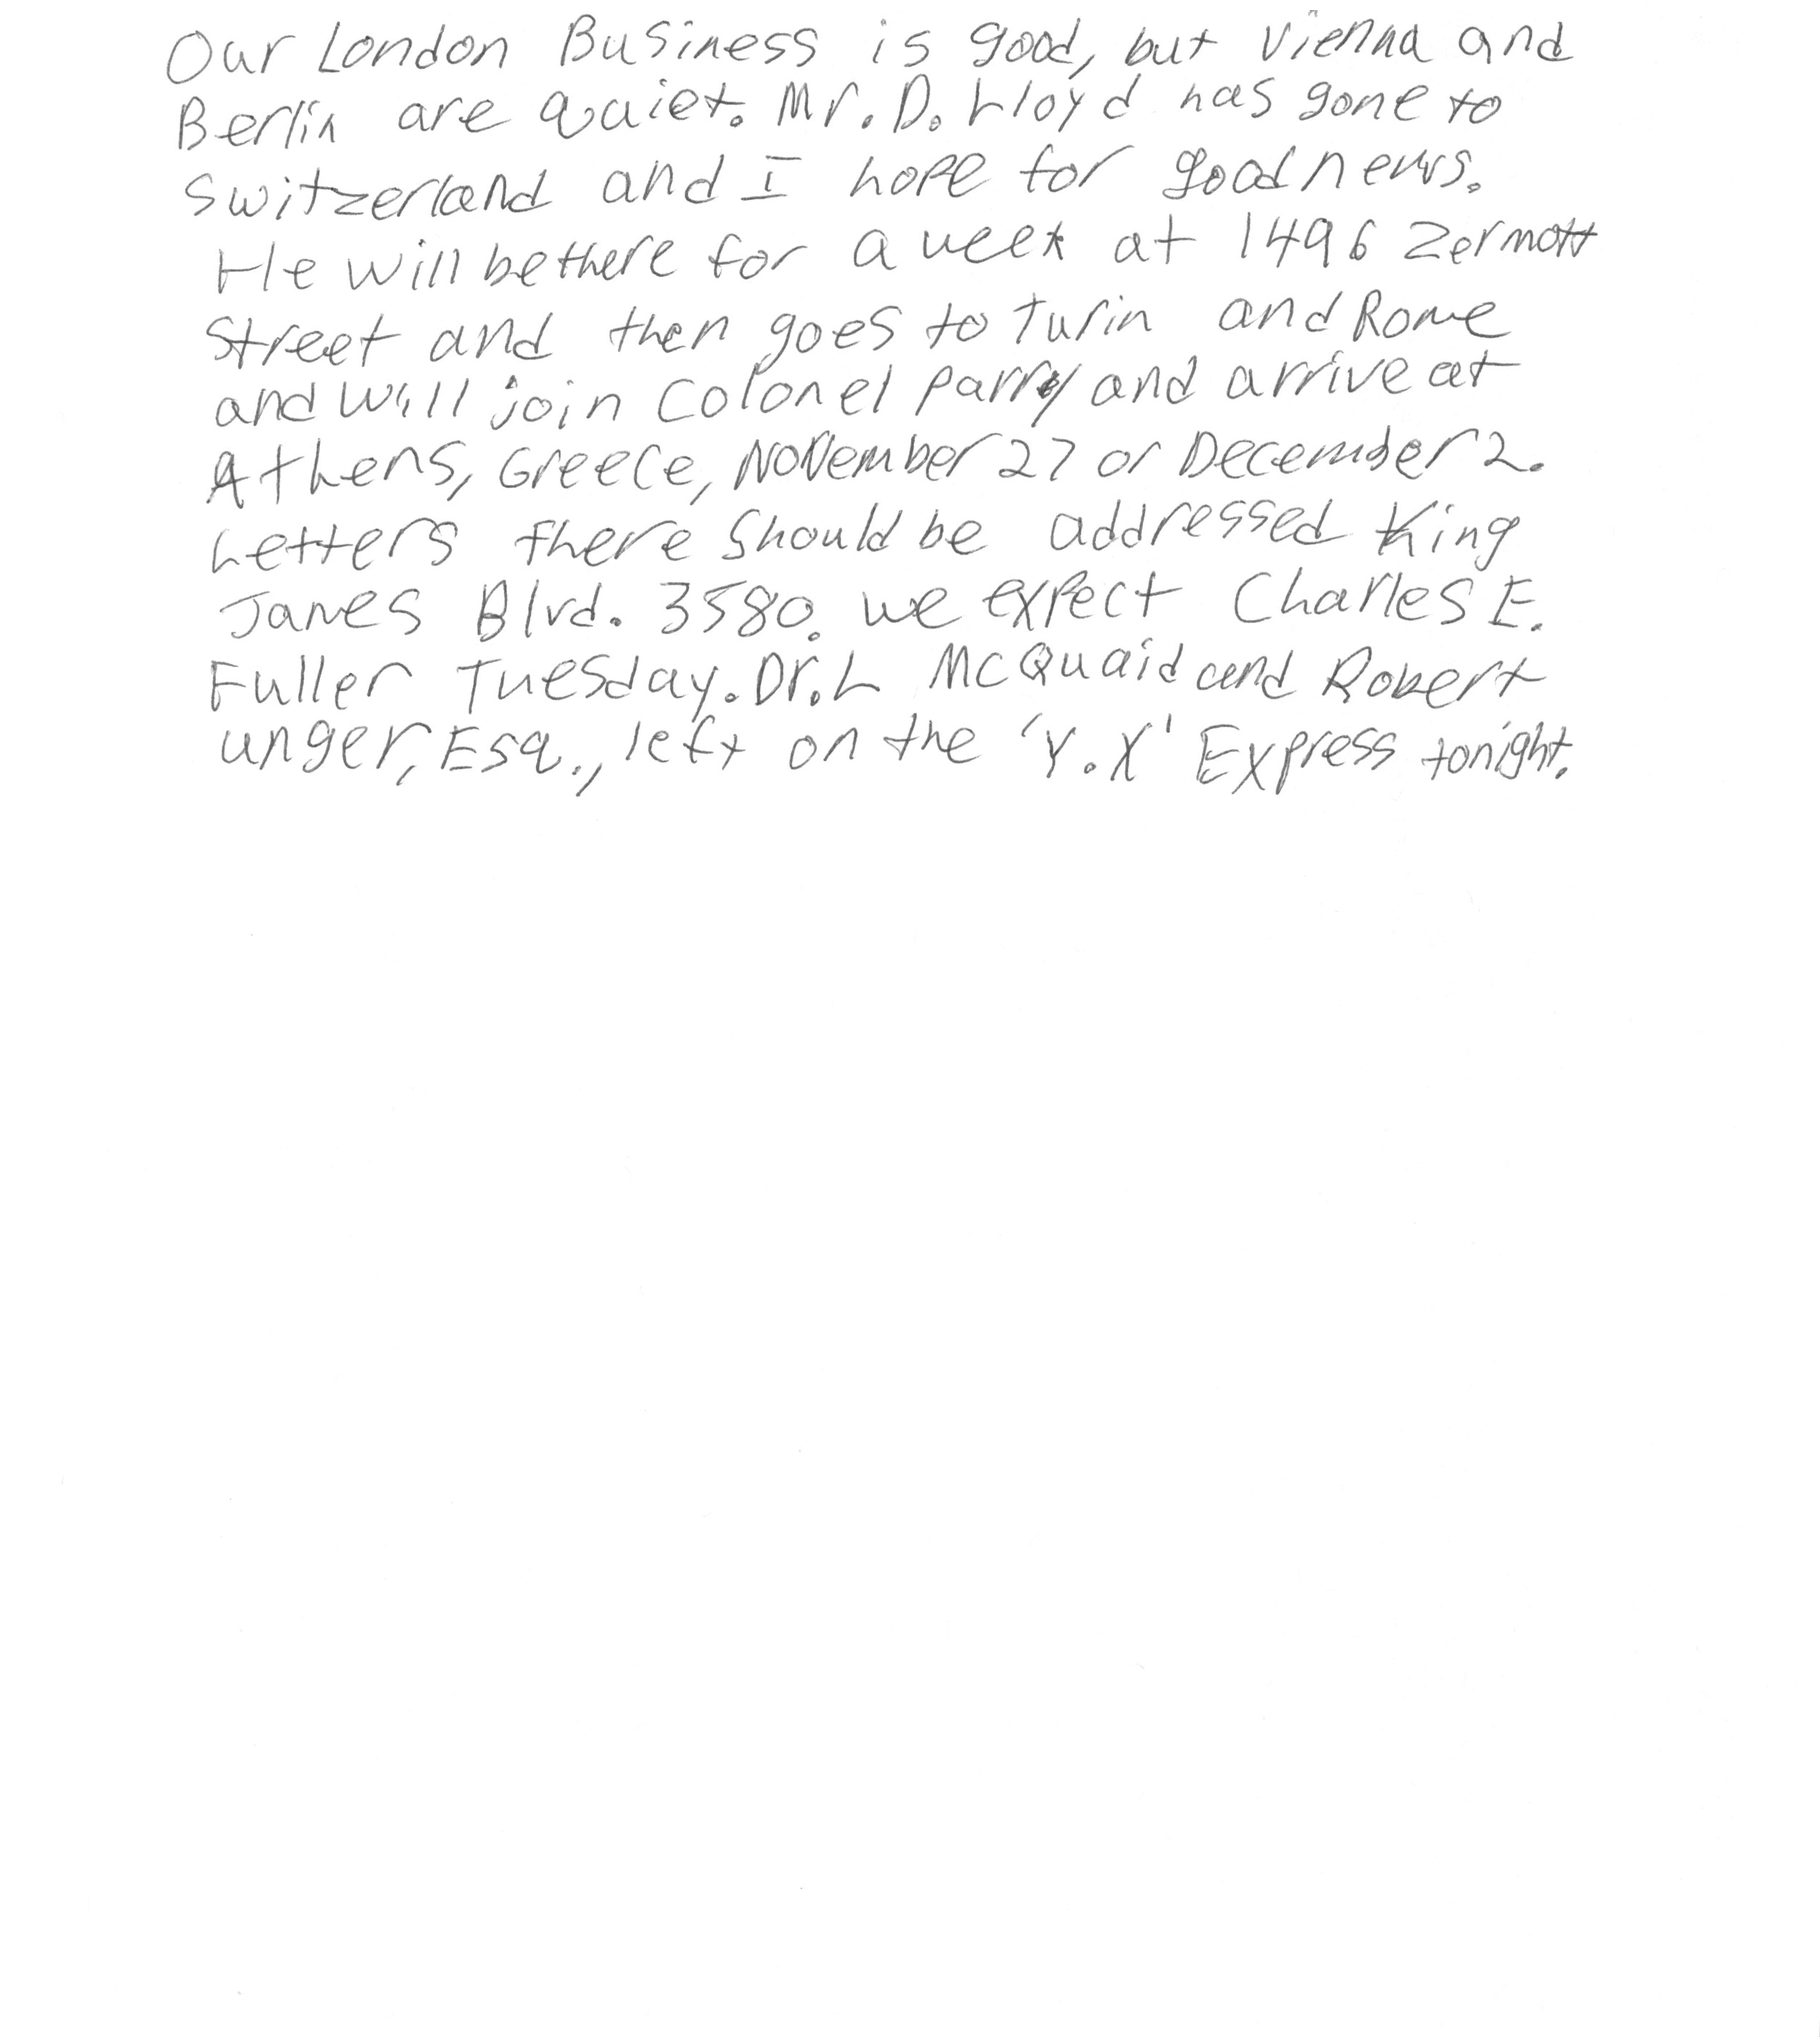 Our London Business is good, but Vienna and
Berlin are quiet. Mr. D. Lloyd has gone to
Switzerland and I hope for good news.
He will be there for a week at 1496 Zermott
Street and then goes to Turin and Rome
and will join Colonel Parry and arrive at
Athens, Greece, November 27 or December 2.
Letters there should be addressed King
James Blvd. 3580. We expect Charles E.
Fuller Tuesday. Dr. L McQuaid and Robert
Unger, Esq., left on the 'Y.X' Express tonight.